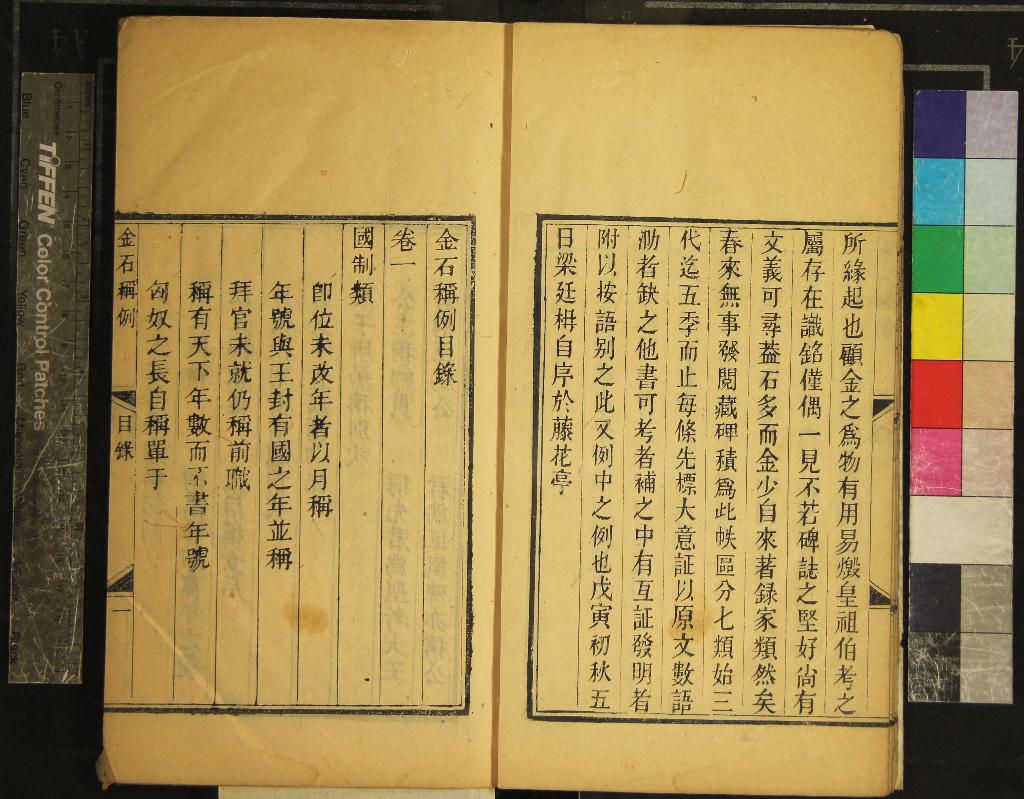 所緣起也顧金之爲物有用易燬皇祖伯考之
屬存在識銘僅偶一見不若碑誌之堅好尚有
文義可尋葢石多而金少自來著録家類然矣
春來無事發閲藏碑積爲此帙區分七類始三
代迄五季而止每條先標大意証以原文數語
泐者缺之他書可考者補之中有互証發明者
附以按語别之此又例中之例也戊寅初秋五
日梁廷枏自序於藤花亭
金石稱例目錄
卷一
國制類
卽位未改年者以月稱
年號與王封有國之年並稱
拜官未就仍稱前職
稱有天下年數而不書年號
匈奴之長自稱單于
金石稱例
目錄
一
Centimetres
Blue
Cyan
Green
Yellow
TIFFEN Color Control Patches